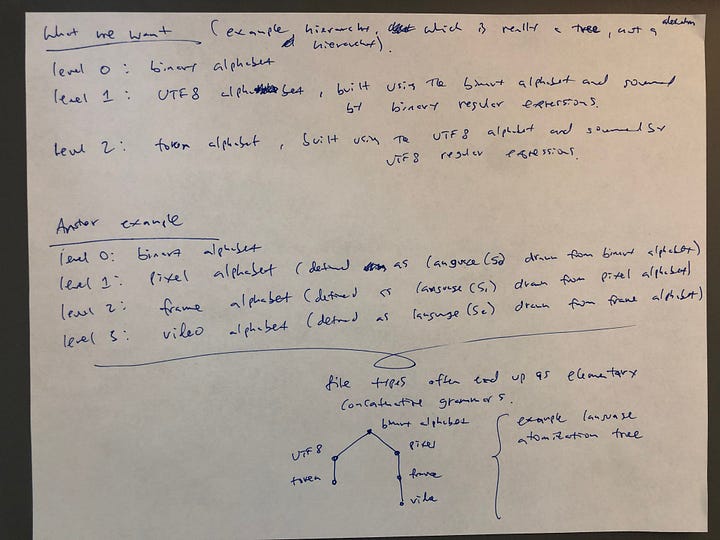 What we want (example hierarchy, which is really a tree, not a
hierarchy).
level 0: binary alphabet
level 1: UTF8 alphabet, built using the binary alphabet and
by binary regular expressions.
level 2: token alphabet, built using the UTF8 alphabet and
UTF8 regular expressions.
Another example
level 0: binary alphabet
level 1: pixel alphabet (defined as language (S0) drawn from binary alphabet)
level 2: frame alphabet (defined as language (S1) drawn from pixel alphabet)
level 3: video alphabet (defined as language (S2) drawn from frame alphabet)
file types often end up as elementary
concatenative grammars.
binary alphabet
UTF8
pixel
token
frame
video
example language
atomization tree